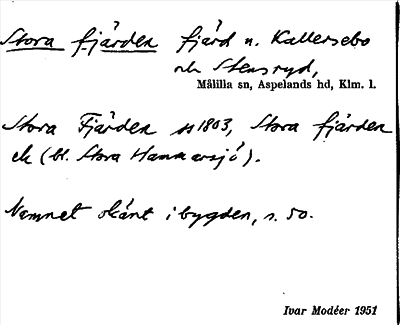 Stora fjärden fjärd n. Kallersebo
och Stensryd,
Målilla sn, Aspelands hd, Klm. l.
Stora Fjärden ss 1803, Stora fjärden
ek (bl. Stora Hammarsjö).
Namnet okänt i bygden, s. 50.
Ivar Modéer 1951